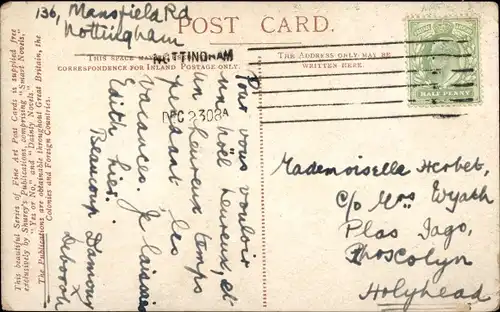 136, Mansfield Rd
Nottingham
POST CARD.
THIS SPACE MAY BE USED FOR
CORRESPONDENCE FOR INLAND POSTAGE ONLY.
THE ADDRESS ONLY MAY BE
WRITTEN HERE.
NOTTINGHAM
DEC 23 08
HALF PENNY
This beautiful Series of Fine Art Post Cards is supplied free
exclusively by Shurey's Publications, comprising "Smart Novels,"
"Yes or No," and "Dainty Novels."
The Publications are obtainable throughout Great Britain, the
Colonies and Foreign Countries.
Pour vous vouloir
un noël heureux, et
un heureux temps
pendant les
vacances. Je laissais
Edith hier.
Beaucoup D'amour
Deborah
X
Mademoiselle Herbet,
c/o Mrs Wyatt
Plas Iago,
Rhoscolyn
Holyhead